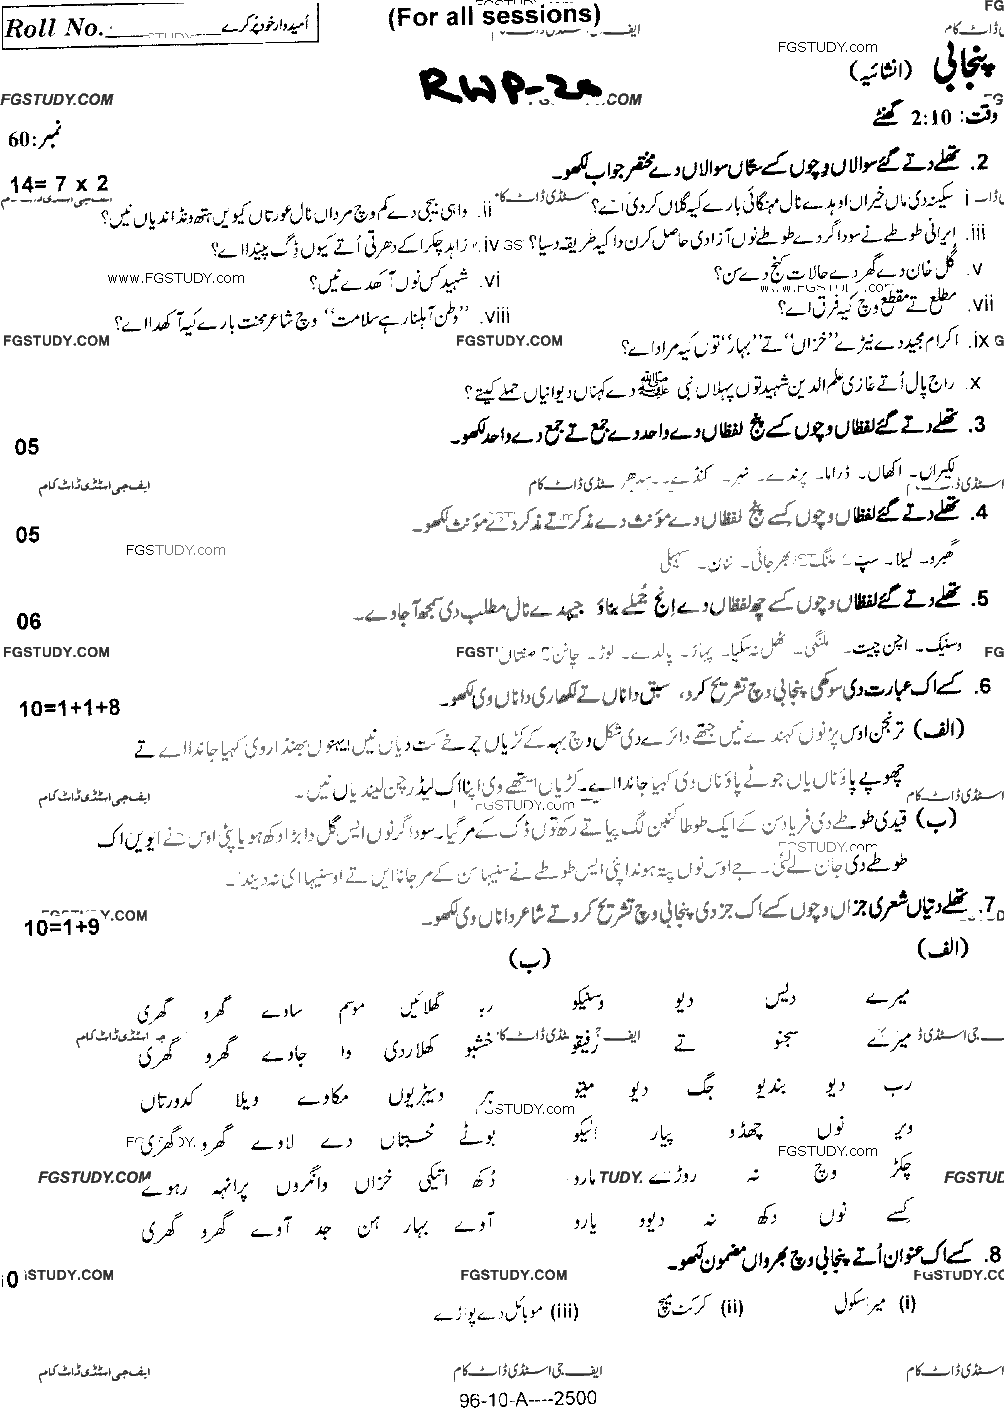 (For all sessions)
Roll No. اُمیدوار خود پُر کرے
FGSTUDY.com
پنجابی (انشائیہ)
RWP-20
FGSTUDY.COM
وقت: 2:10 گھنٹے
نمبر: 60
2. تھلے دتے گئے سوالاں وچوں کسے ستّاں سوالاں دے مختصر جواب لکھو۔
14= 7 x 2
i سکینہ دی ماں خیراں اوہدے نال مہنگائی بارے کیہ گلاں کردی اے؟
ii. واہی بیجی دے کم وچ مرداں نال عورتاں کیویں ہتھ ونڈاندیاں نیں؟
iii. ایرانی طوطے نے سوداگر دے طوطے نوں آزادی حاصل کرن دا کیہ طریقہ دسیا؟
iv. زاہد چکرا کے دھرتی اُتے کیوں ڈِگ پیندا اے؟
v. گل خان دے گھر دے حالات کنج دے سن؟
vi. شہید کس نوں آکھدے نیں؟
www.FGSTUDY.com
vii. مطلع تے مقطع وچ کیہ فرق اے؟
viii. "وطن آہلنا رہے سلامت" وچ شاعر محنت بارے کیہ آکھدا اے؟
FGSTUDY.COM
FGSTUDY.COM
ix. اکرام مجید دے نیڑے "خزاں" تے "بہار" توں کیہ مراد اے؟
x. راج پال اُتے غازی علم الدین شہید توں پہلاں نبی ﷺ دے کہناں دیوانیاں حملے کیتے؟
3. تھلے دتے گئے لفظاں وچوں کسے پنج لفظاں دے واحد دے جمع تے جمع دے واحد لکھو۔
05
لکیراں۔ اکھاں۔ ڈراما۔ پرندے۔ نہر۔ کنڈے۔
ایف جی اسٹڈی ڈاٹ کام
4. تھلے دتے گئے لفظاں وچوں کسے پنج لفظاں دے مؤنث دے مذکر تے مذکر دے مؤنث لکھو۔
05
FGSTUDY.com
گھبرو۔ لیلا۔ سپ۔ ملنگ۔ بھرجائی۔ ننان۔ سہیلی
5. تھلے دتے گئے لفظاں وچوں کسے چھ لفظاں دے اِنج جُملے بناؤ جیہدے نال مطلب دی سمجھ آ جاوے۔
06
وسنیک۔ اچن چیت۔ ملنگی۔ ٹھل نہ سکیا۔ پہاڑ۔ پالدے۔ لوڑ۔ چانن۔ صفتاں
FGSTUDY.COM
6. کسے اک عبارت دی سوکھی پنجابی وچ تشریح کرو، سبق دا ناں تے لکھاری دا ناں وی لکھو۔
10=1+1+8
(الف) ترنجن اوس پڑ نوں کہندے نیں جتھے دائرے دی شکل وچ بہہ کے کڑیاں چرخے کت دیاں نیں ایہنوں بھنڈار وی کہیا جاندا اے تے
چھوپے پاؤناں یاں جوٹے پاؤناں وی کہیا جاندا اے۔ کڑیاں ایتھے وی اپنا اک لیڈر چن لیندیاں نیں۔
ایف جی اسٹڈی ڈاٹ کام
FGSTUDY.com
(ب) قیدی طوطے دی فریاد سن کے ایک طوطا کنبن لگ پیا تے رکھ توں ڈگ کے مر گیا۔ سوداگر نوں ایس گل دا بڑا دکھ ہویا پئی اوس نے ایویں اک
FGSTUDY.com
طوطے دی جان لے لئی۔ جے اوس نوں پتہ ہوندا پئی ایس طوطے نے سنیہا سن کے مر جانا ایں تے او سنیہا ای نہ دیندا۔
7. تھلے دتیاں شعری جزاں وچوں کسے اک جز دی پنجابی وچ تشریح کرو تے شاعر دا ناں وی لکھو۔
10=1+9
(الف)
میرے دیس دیو وسنیکو
میرے سجنو تے رفیقو
رب دیو بندیو جگ دیو میتو
ویر نوں چھڈو پیار الیکو
چکڑ وچ نہ روڑے مارو
کسے نوں دکھ نہ دیوو یارو
(ب)
رب گھلائیں موسم سادے گھرو گھری
خشبو کھلاردی وا جاوے گھرو گھری
ہر ویہڑیوں مکاوے ویلا کدورتاں
بوٹے محبتاں دے لاوے گھرو گھری
دُکھ اتیکی خزاں وانگروں پرانہہ رہوے
آوے بہار ہن جد آوے گھرو گھری
FGSTUDY.com
FGSTUDY.com
FGSTUDY.COM
8. کسے اک عنوان اُتے پنجابی وچ بھرواں مضمون لکھو۔
FGSTUDY.COM
(i) میرا سکول (ii) کرکٹ میچ (iii) موبائل دے پواڑے
ایف جی اسٹڈی ڈاٹ کام
ایف جی اسٹڈی ڈاٹ کام
96-10-A----2500